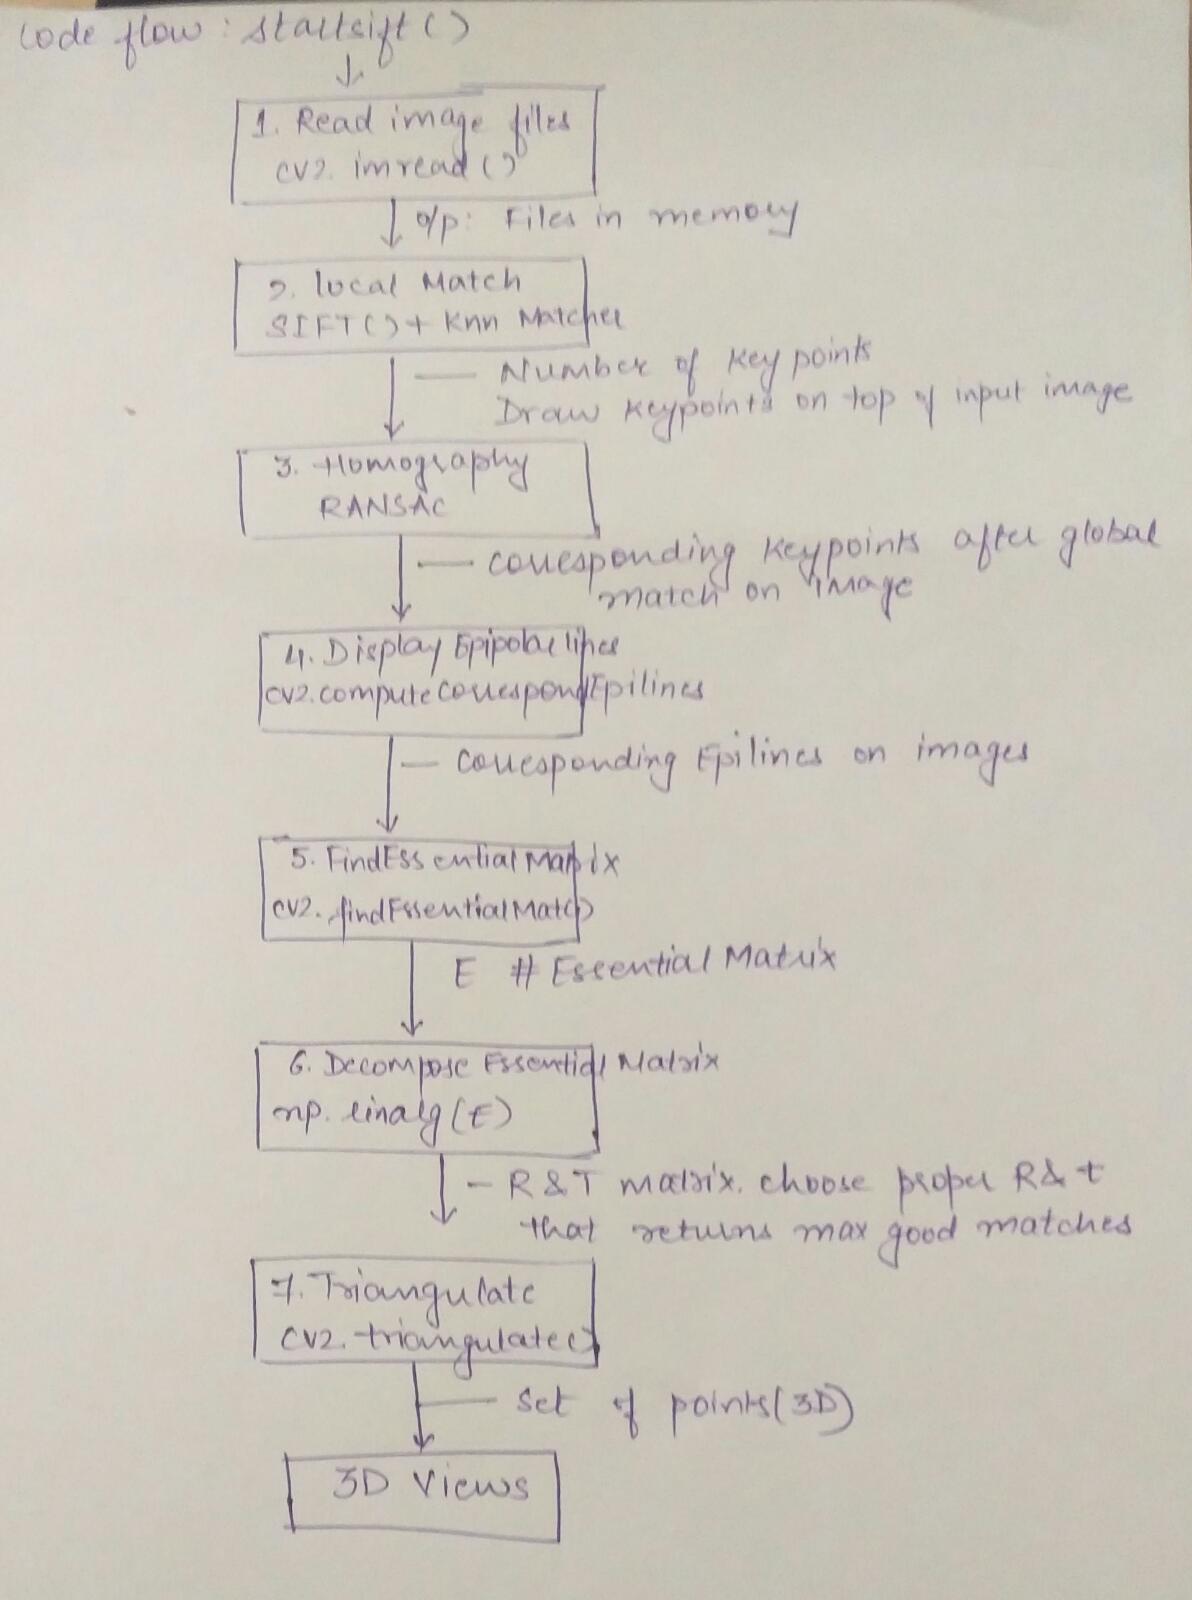 Code flow : startsift()
1. Read image files
cv2. imread()
o/p: Files in memory
2. local Match
SIFT() + Knn Matcher
Number of Key points
Draw Keypoints on top of input image
3. Homography
RANSAC
corresponding Keypoints after global
match on image
4. Display Epipolar lines
cv2.computeCorrespondEpilines
corresponding Epilines on images
5. FindEssential Matrix
cv2. findEssentialMat()
E # Essential Matrix
6. Decompose Essential Matrix
np. linalg (E)
- R & T matrix. choose proper R & t
that returns max good matches
7. Triangulate
cv2. triangulate()
Set of points(3D)
3D Views